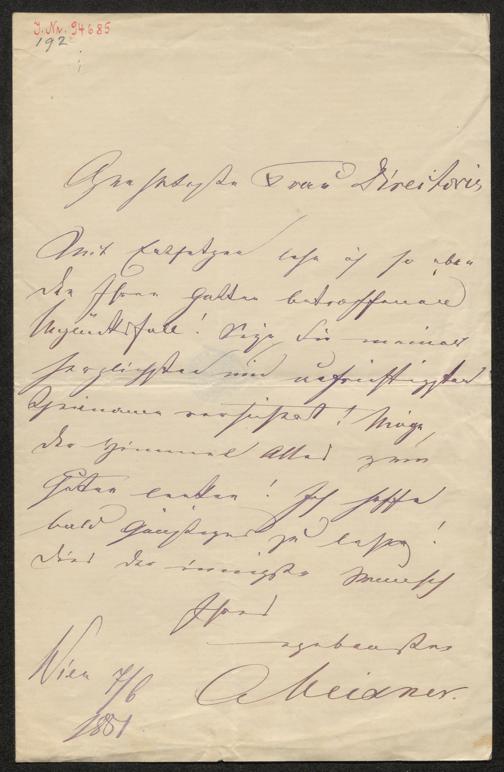 J. Nr. 94685
192
Geschätzteste Frau Directorin
Mit Entsetzen lese ich so eben
den Ihren Gatten betroffenen
Unglücksfall! Seien Sie meiner
herzlichsten und aufrichtigsten
Theilnahme versichert! Möge
der Himmel Alles zum
Guten lenken! Ich hoffe
bald Günstiges zu lesen!
Dies der innigste Wunsch
Ihres
ergebensten
Meixner.
Wien 7/6
1881